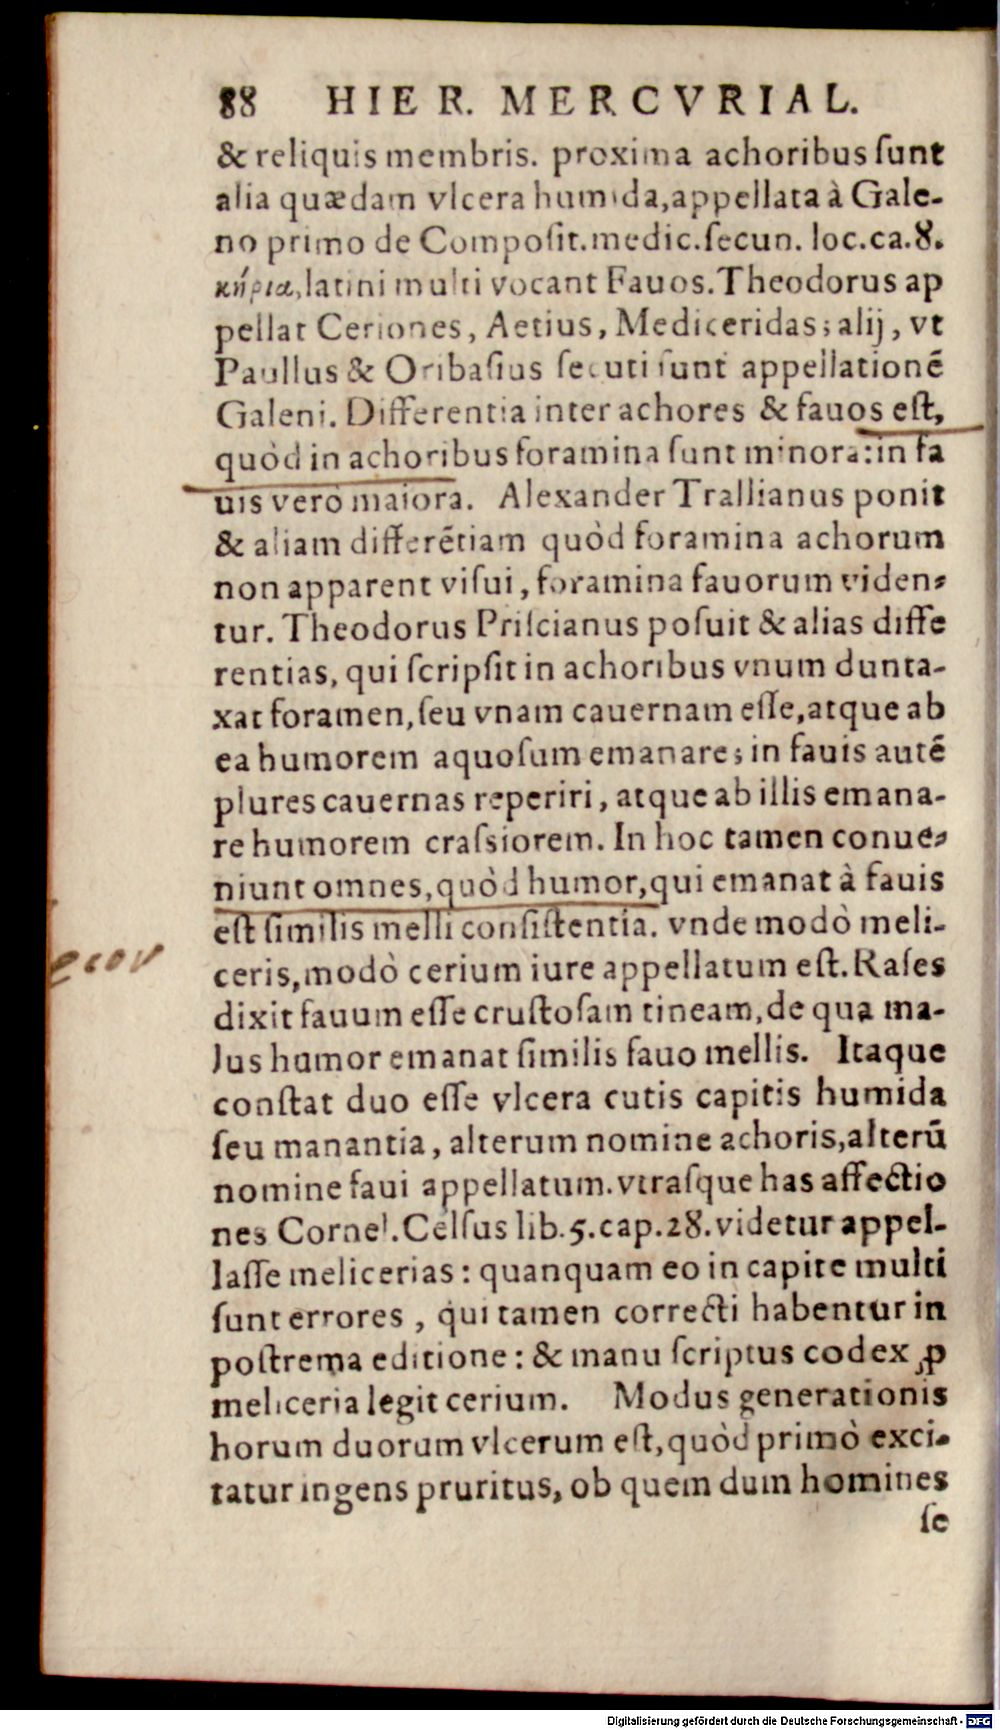 88 HIER. MERCVRIAL.
& reliquis membris. proxima achoribus ſunt
alia quædam vlcera humida,appellata à Gale-
no primo de Compoſit.medic.ſecun. loc.ca.8.
κήρια,latini multi vocant Fauos.Theodorus ap
pellat Ceriones, Aetius, Mediceridas; alij, vt
Paullus & Oribaſius ſecuti ſunt appellationē
Galeni. Differentia inter achores & fauos eſt,
quòd in achoribus foramina ſunt minora:in fa
uis verò maiora. Alexander Trallianus ponit
& aliam differētiam quòd foramina achorum
non apparent viſui, foramina fauorum viden-
tur. Theodorus Priſcianus poſuit & alias diffe
rentias, qui ſcripſit in achoribus vnum dunta-
xat foramen, ſeu vnam cauernam eſſe,atque ab
ea humorem aquoſum emanare; in fauis autē
plures cauernas reperiri, atque ab illis emana-
re humorem craſsiorem. In hoc tamen conue-
niunt omnes,quòd humor,qui emanat à fauis
eſt ſimilis melli conſiſtentia. vnde modò meli-
ceris,modò cerium iure appellatum eſt. Raſes
dixit fauum eſſe cruſtoſam tineam,de qua ma-
lus humor emanat ſimilis fauo mellis. Itaque
conſtat duo eſſe vlcera cutis capitis humida
ſeu manantia, alterum nomine achoris,alterū
nomine faui appellatum.vtraſque has affectio
nes Cornel.Celſus lib.5.cap.28.videtur appel-
laſſe melicerias: quanquam eo in capite multi
ſunt errores, qui tamen correcti habentur in
poſtrema editione: & manu ſcriptus codex ꝓ
meliceria legit cerium. Modus generationis
horum duorum vlcerum eſt,quòd primò exci-
tatur ingens pruritus, ob quem dum homines
ſe
Digitalisierung gefördert durch die Deutsche Forschungsgemeinschaft - DFG